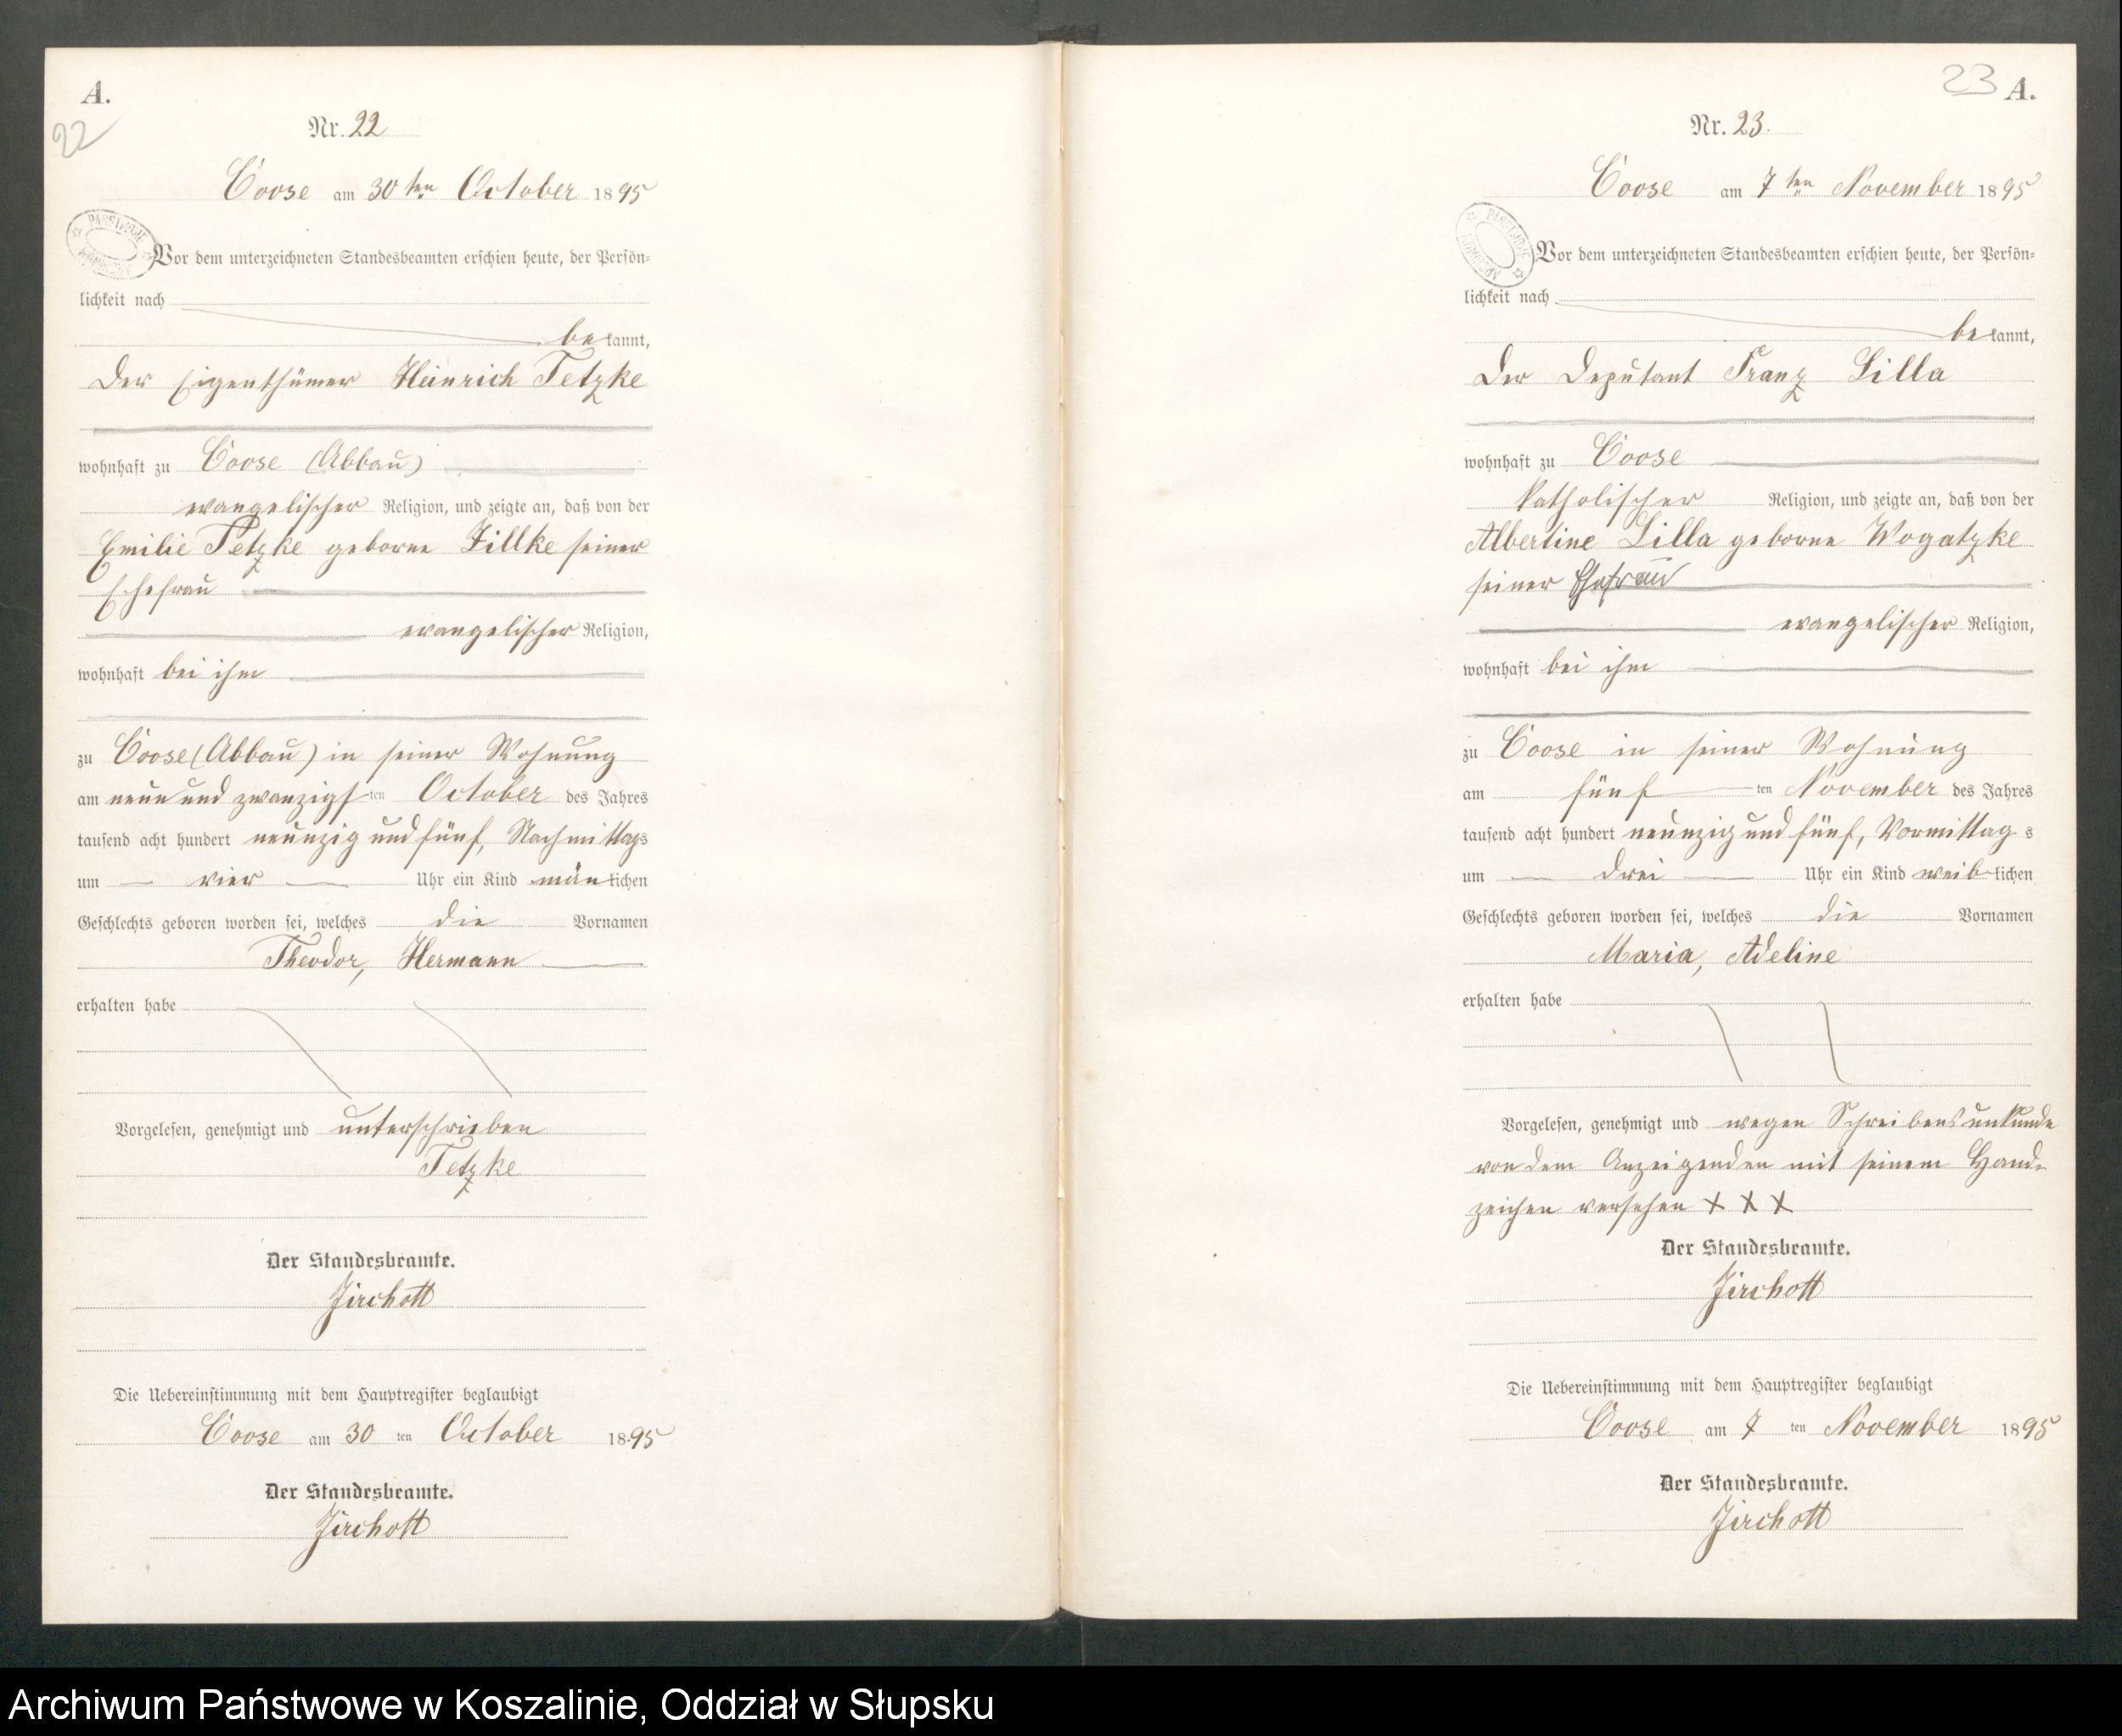 A.
22
Nr. 22
Coose am 30ten October 1895
Vor dem unterzeichneten Standesbeamten erschien heute, der Persön-
lichkeit nach
bekannt,
der Eigenthümer Heinrich Tetzke
wohnhaft zu Coose (Abbau)
evangelischer Religion, und zeigte an, daß von der
Emilie Tetzke geborne Zillke seiner
Ehefrau
evangelischer Religion,
wohnhaft bei ihm
zu Coose (Abbau) in seiner Wohnung
am neun und zwanzigsten October des Jahres
tausend acht hundert neunzig und fünf, Nachmittags
um vier Uhr ein Kind mänlichen
Geschlechts geboren worden sei, welches die Vornamen
Theodor, Hermann
erhalten habe
Vorgelesen, genehmigt und unterschrieben
Tetzke
Der Standesbeamte.
Zirchott
Die Uebereinstimmung mit dem Hauptregister beglaubigt
Coose am 30 ten October 1895
Der Standesbeamte.
Zirchott
23 A.
Nr. 23.
Coose am 7ten November 1895
PAŃSTWOWE ARCHIWUM
Vor dem unterzeichneten Standesbeamten erschien heute, der Persön-
lichkeit nach
bekannt,
der Deputant Franz Lilla
wohnhaft zu Coose
katholischer Religion, und zeigte an, daß von der
Albertine Lilla geborne Wogatzke
seiner Ehefrau
evangelischer Religion,
wohnhaft bei ihm
zu Coose in seiner Wohnung
am fünf ten November des Jahres
tausend acht hundert neunzig und fünf, Vormittags
um drei Uhr ein Kind weiblichen
Geschlechts geboren worden sei, welches die Vornamen
Maria, Adeline
erhalten habe
Vorgelesen, genehmigt und wegen Schreibensunkunde
von dem Anzeigenden mit seinem Hand-
zeichen versehen + + +
Der Standesbeamte.
Zirchott
Die Uebereinstimmung mit dem Hauptregister beglaubigt
Coose am 7 ten November 1895
Der Standesbeamte.
Zirchott
Archiwum Państwowe w Koszalinie, Oddział w Słupsku